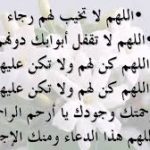 اللهم لا تخيب لهم رجاء
اللهم لا تقفل أبوابك دونهم
اللهم كن لهم ولا تكن عليهم
اللهم كن لهم ولا تكن عليهم
رحمتك وجودك يا أرحم الراحمين
اللهم هذا الدعاء ومنك الإجابة